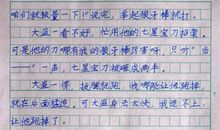 咱们就较量一下!"说完,拿起狼牙棒就打。
大盗一看不好,忙用他的七星宝刀招架。
可是他的刀哪有我的狼牙棒厉害呀,只听"当
——"一声,七星宝刀被砸成两半。
大盗一愣,拔腿就跑,我哪能让他跑掉,
就在后面猛追。可大盗身法太快,我追不上,
让他跑掉了。